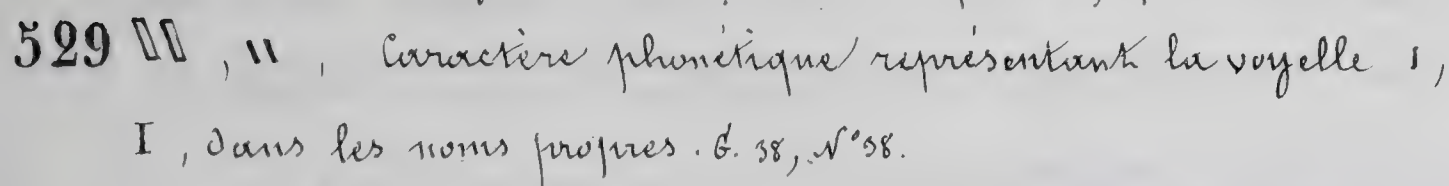 529 𓏮, 𓏭, Caractère phonétique représentant la voyelle ı,
I, dans les noms propres. G. 38, N° 98.